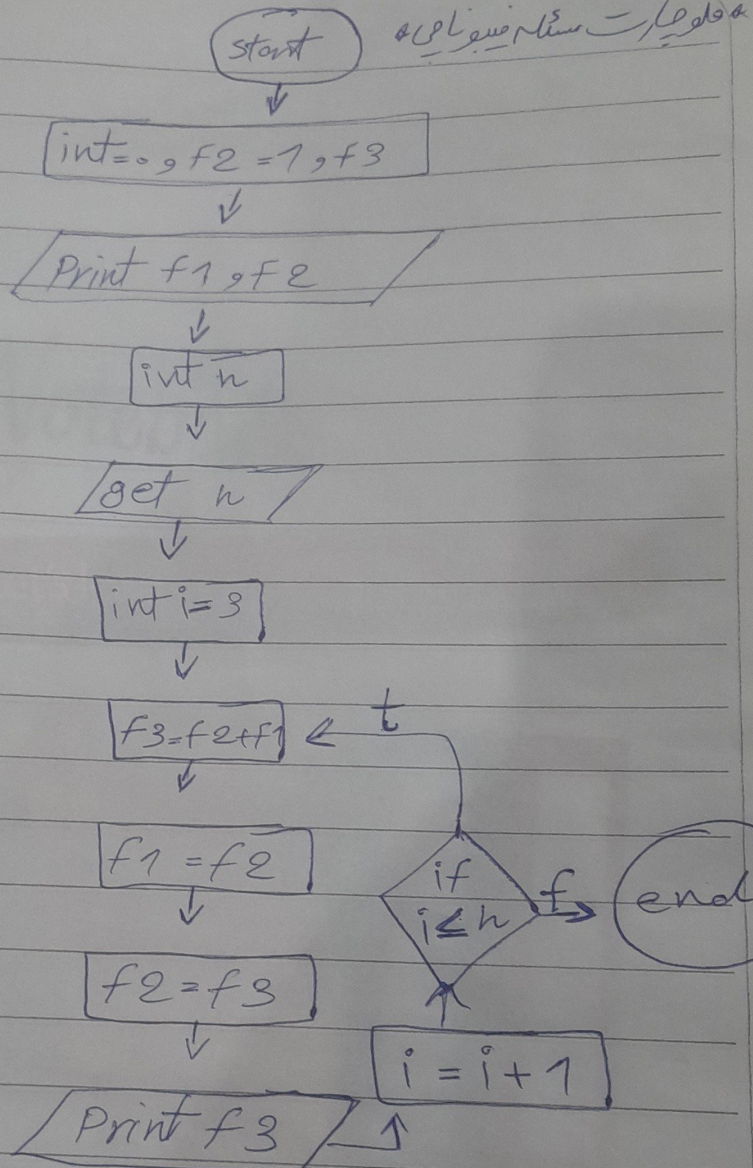 *فلوچارت مسئله فیبوناچی*
start
int=0, f2=1, f3
Print f1, f2
int n
get n
int i=3
f3=f2+f1
t
f1=f2
if
i≤n
f
end
f2=f3
i=i+1
Print f3